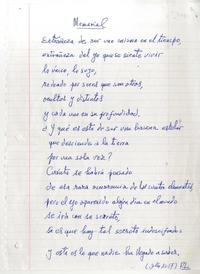 Memorial
Extrañeza de ser uno mismo en el tiempo,
extrañeza del yo que se siente vivir
lo único, lo suyo,
rodeado por seres que son otros,
ocultos y distintos
y cada uno en su profundidad.
¿Y qué es esto de ser una persona
que desciende a la tierra
por una sola vez?
Cuánto se habrá pasado
de esta rara ocurrencia de los cuatro elementos,
pero el yo aparecido algún día en
se irá con su secreto,
si es que hay tal secreto indescifrado
y esto es lo que nadie ha llegado a saber.